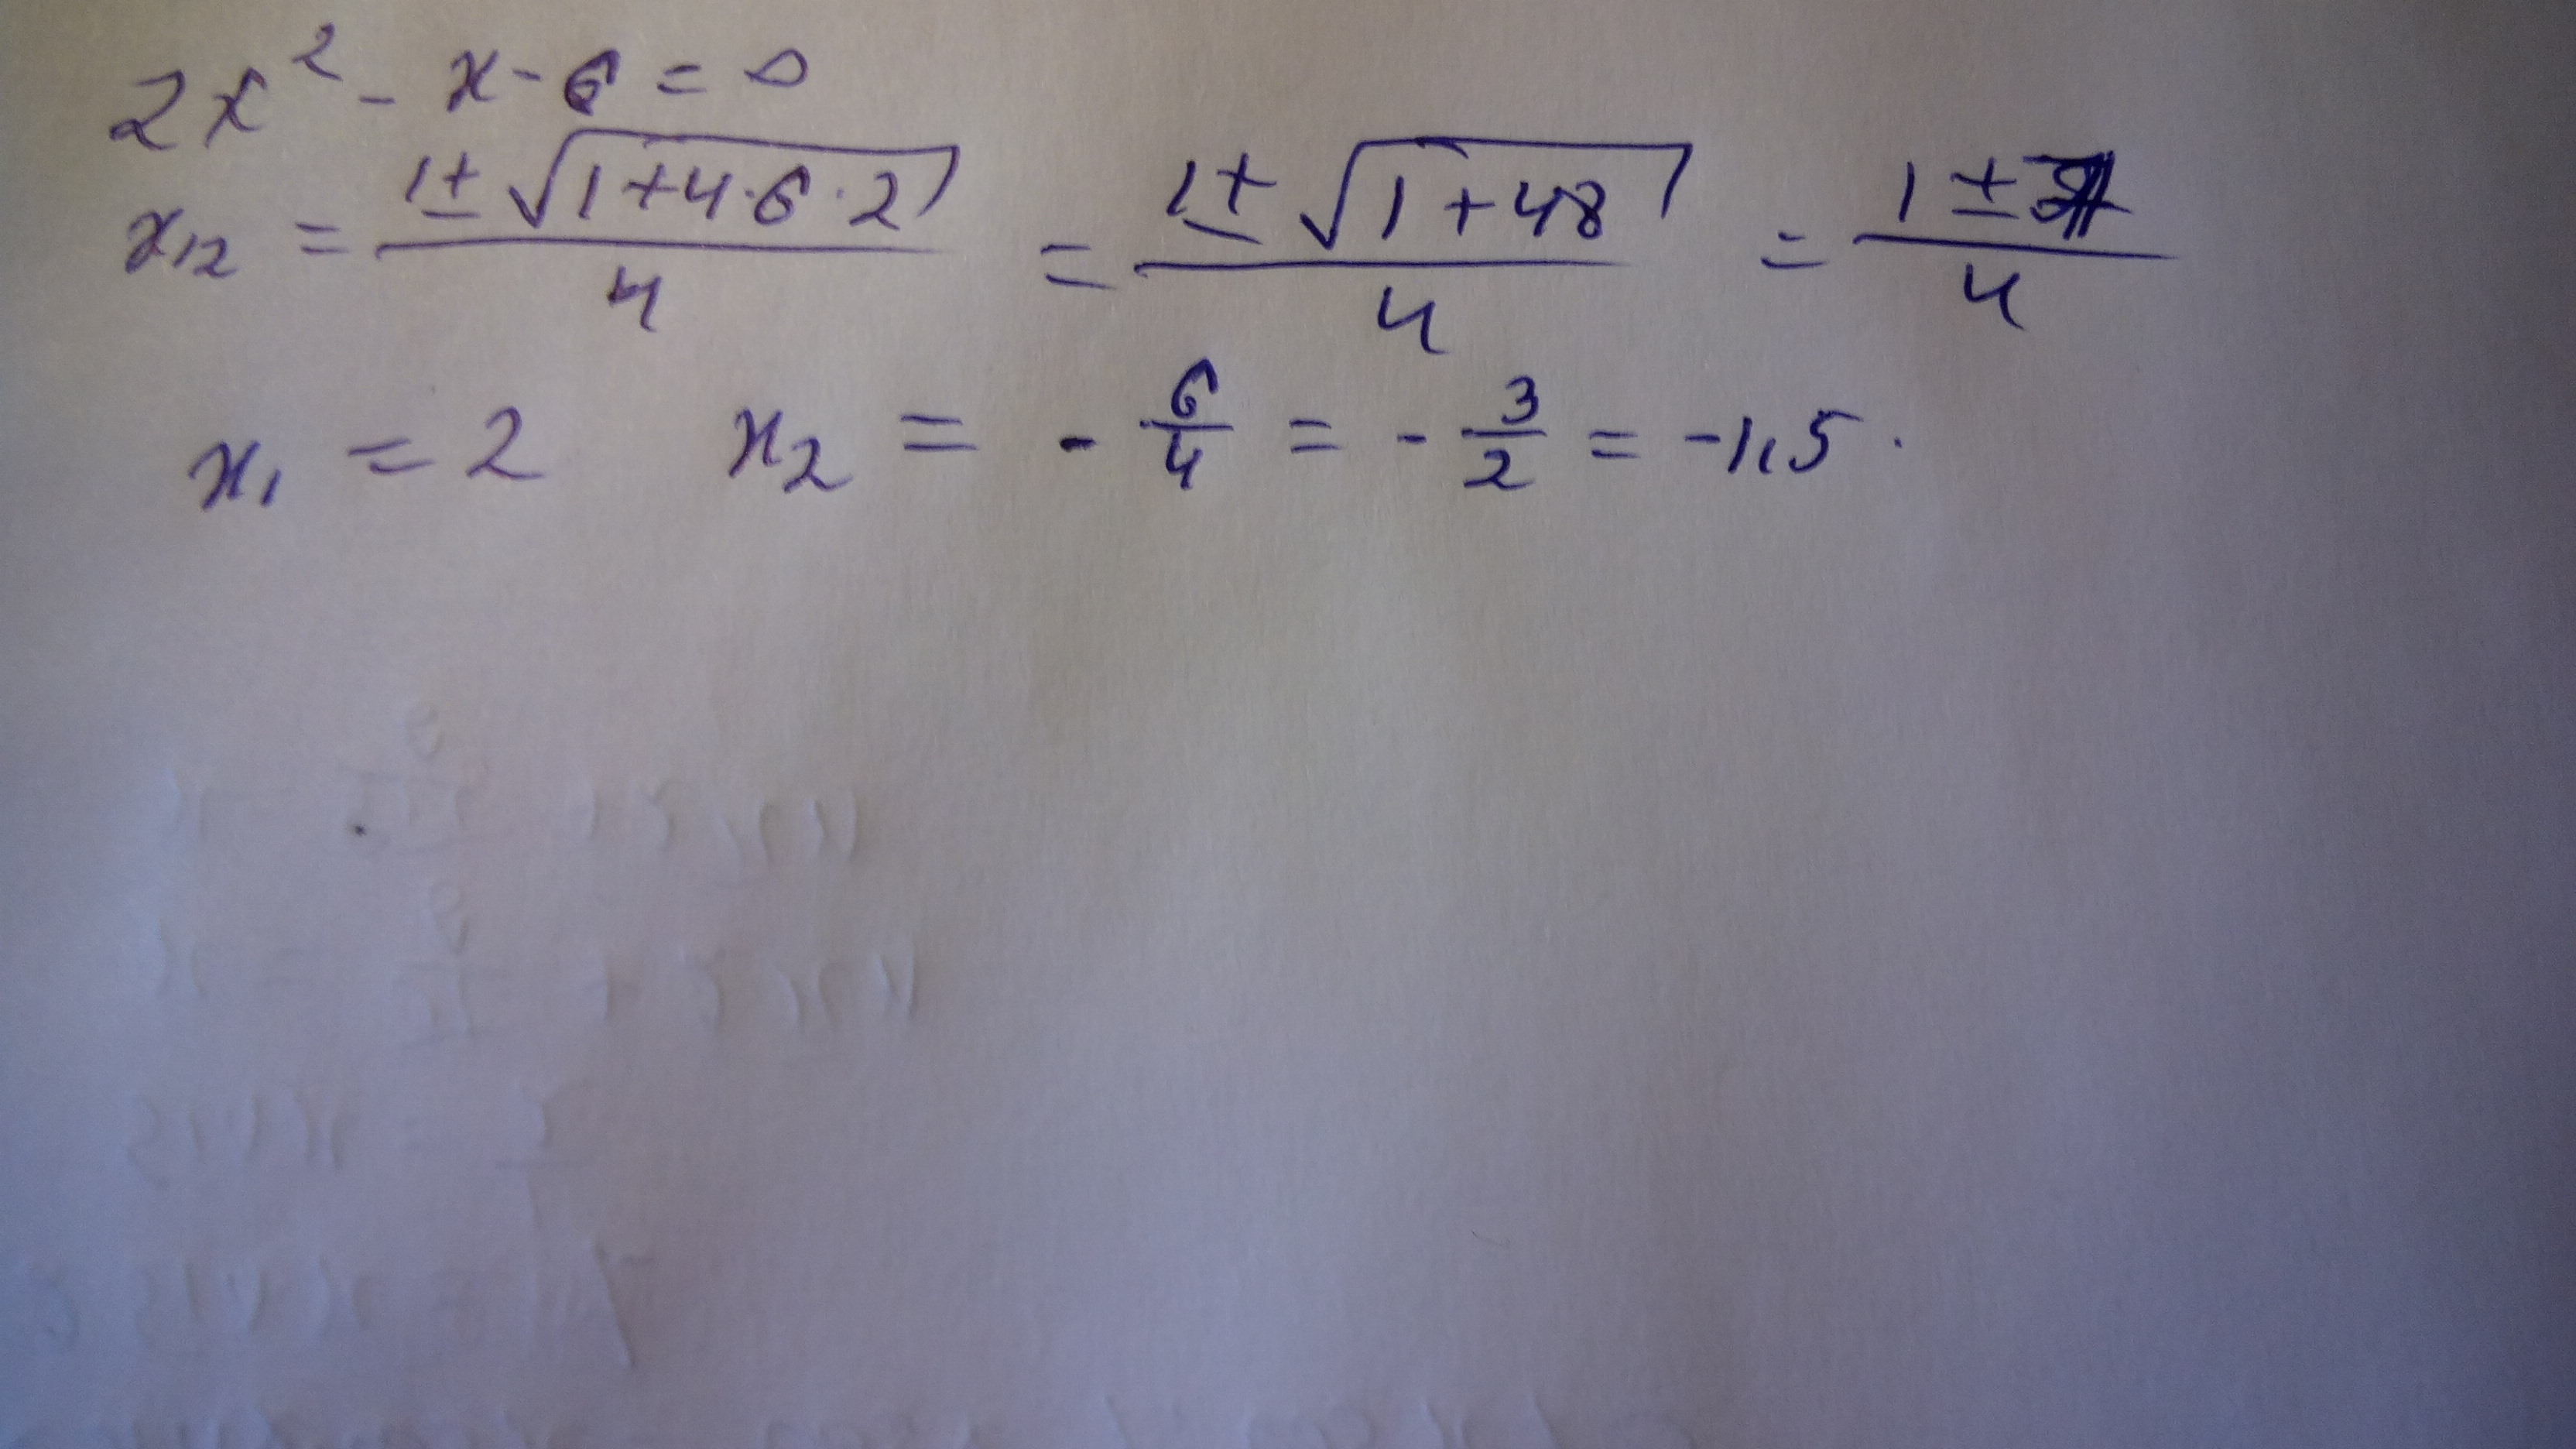 2x² - x - 6 = 0
x₁₂ = (1 ± √(1+4·6·2))/4 = (1 ± √(1+48))/4 = (1 ± 7)/4
x₁ = 2 x₂ = -6/4 = -3/2 = -1,5.